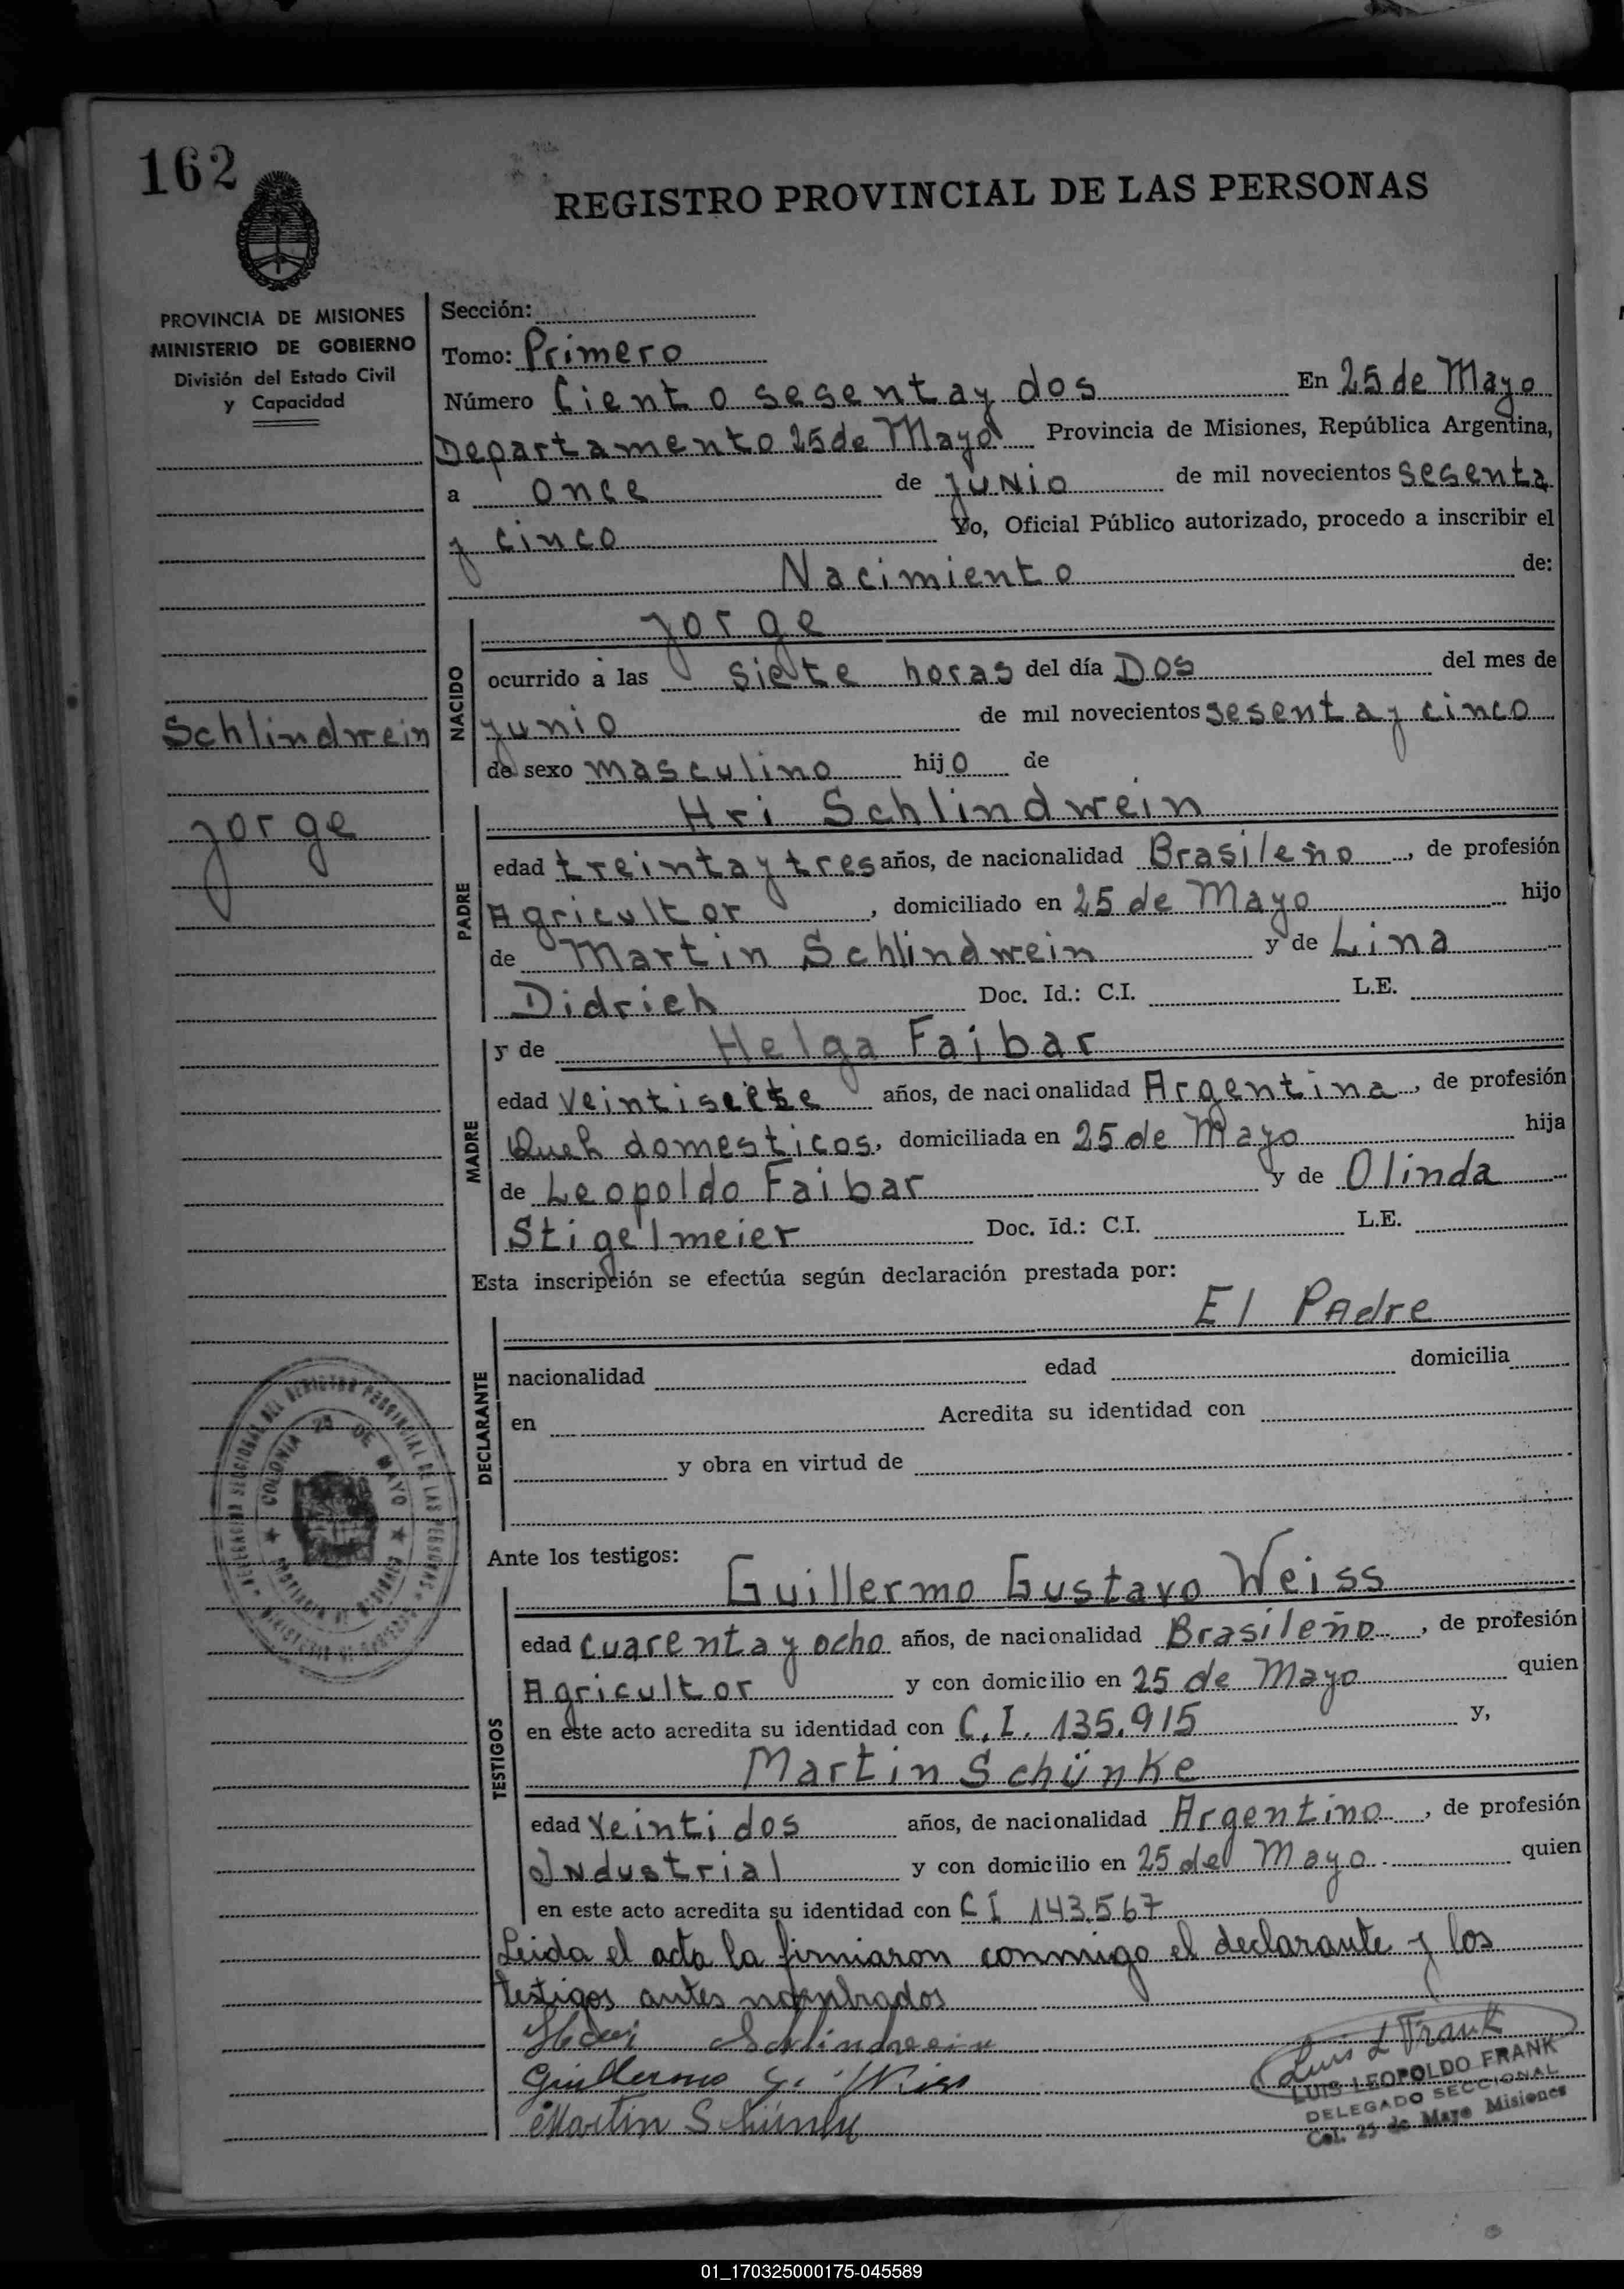 162
REGISTRO PROVINCIAL DE LAS PERSONAS
PROVINCIA DE MISIONES
MINISTERIO DE GOBIERNO
División del Estado Civil
y Capacidad
Schlindwein
Jorge
Sección:
Tomo: Primero
Número Ciento sesenta y dos En 25 de Mayo
Departamento 25 de Mayo Provincia de Misiones, República Argentina,
a once de junio de mil novecientos sesenta
y cinco Yo, Oficial Público autorizado, procedo a inscribir el
Nacimiento de:
NACIDO
Jorge
ocurrido a las siete horas del día Dos del mes de
junio de mil novecientos sesenta y cinco
de sexo masculino hijo de
PADRE
Hri Schlindwein
edad treinta y tres años, de nacionalidad Brasileño, de profesión
Agricultor, domiciliado en 25 de Mayo hijo
de Martin Schlindwein y de Lina
Didrich Doc. Id.: C.I. L.E.
MADRE
y de Helga Faibar
edad Veintisiete años, de nacionalidad Argentina, de profesión
Queh domesticos, domiciliada en 25 de Mayo hija
de Leopoldo Faibar y de Olinda
Stigelmeier Doc. Id.: C.I. L.E.
Esta inscripción se efectúa según declaración prestada por:
El Padre
DECLARANTE
nacionalidad edad domicilia
en Acredita su identidad con
y obra en virtud de
COLONIA 25 DE MAYO
Ante los testigos:
TESTIGOS
Guillermo Gustavo Weiss
edad cuarenta y ocho años, de nacionalidad Brasileño, de profesión
Agricultor y con domicilio en 25 de Mayo quien
en este acto acredita su identidad con C.I. 135.915 y,
Martin Schünke
edad Veintidos años, de nacionalidad Argentino, de profesión
Industrial y con domicilio en 25 de Mayo quien
en este acto acredita su identidad con C I 143.567
Leida el acta la firmaron conmigo el declarante y los
testigos antes nombrados
Schlindwein
Guillermo G. Weiss
Martin Schünke
Luis L Frank
LUIS LEOPOLDO FRANK
DELEGADO SECCIONAL
Col. 25 de Mayo Misiones
01_170325000175-045589